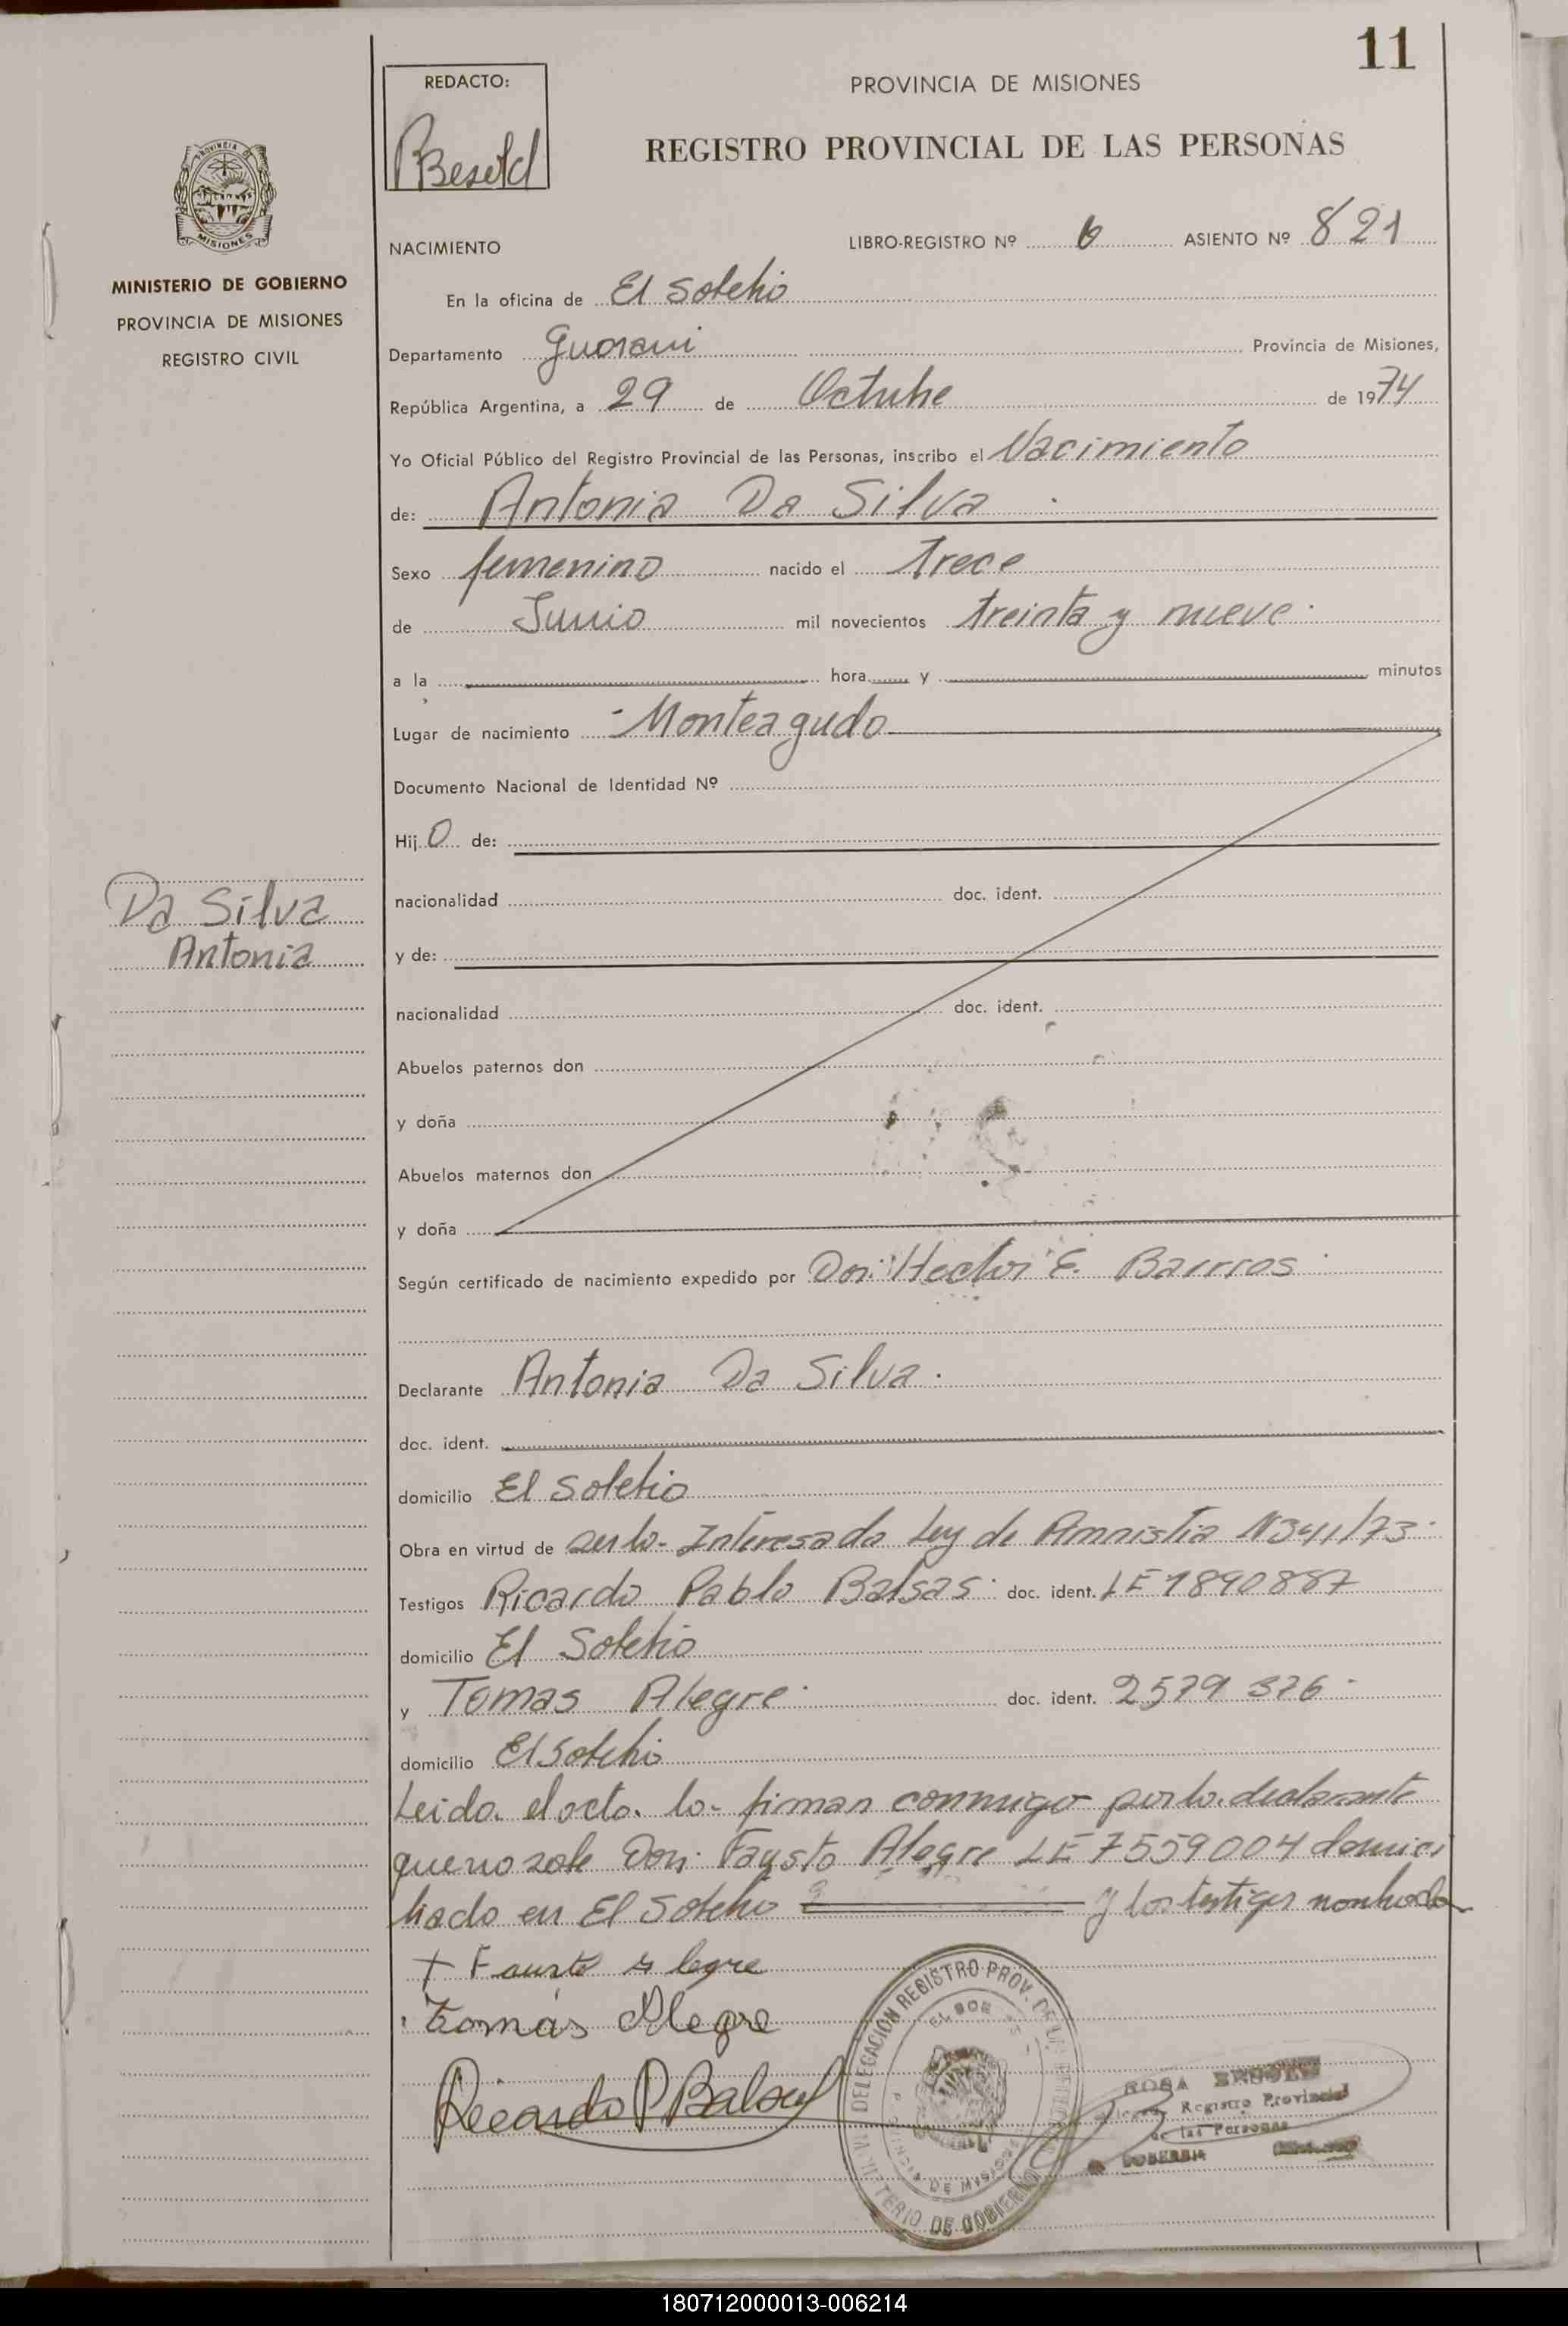 11
REDACTO:
PROVINCIA DE MISIONES
REGISTRO PROVINCIAL DE LAS PERSONAS
PROVINCIA D
MISIONES
MINISTERIO DE GOBIERNO
PROVINCIA DE MISIONES
REGISTRO CIVIL
NACIMIENTO LIBRO-REGISTRO Nº 6 ASIENTO Nº 821
En la oficina de El Sobebio
Departamento Guarani Provincia de Misiones,
República Argentina, a 29 de Octubre de 1974
Yo Oficial Público del Registro Provincial de las Personas, inscribo el Nacimiento
de: Antonia Da Silva
Sexo femenino nacido el trece
de Junio mil novecientos treinta y nueve
a la hora y minutos
Lugar de nacimiento Monteagudo
Documento Nacional de Identidad Nº
Hij o de:
Da Silva
Antonia
nacionalidad doc. ident.
y de:
nacionalidad doc. ident.
Abuelos paternos don
y doña
Abuelos maternos don
y doña
Según certificado de nacimiento expedido por Don: Hector E. Barrros
Declarante Antonia Da Silva.
doc. ident.
domicilio El
Obra en virtud de Interesada Ley de Amnistia
Testigos Ricardo Pablo Balsas doc. ident. LE 1890887
domicilio El
y Tomas Alegre doc. ident. 2579 376
domicilio El
Leida el acta la firman conmigo por la declarante
que no sabe Don: Fausto Alegre LE 7559004 domici
liado en El y los testigos
+ Fausto Alegre
Tomás Alegre
Ricardo P Balsas
DELEGACION REGISTRO PROV. DE LA
DE MISIONES
DE GOBIERNO
ROSA
Registro Provincial
de las Personas
180712000013-006214